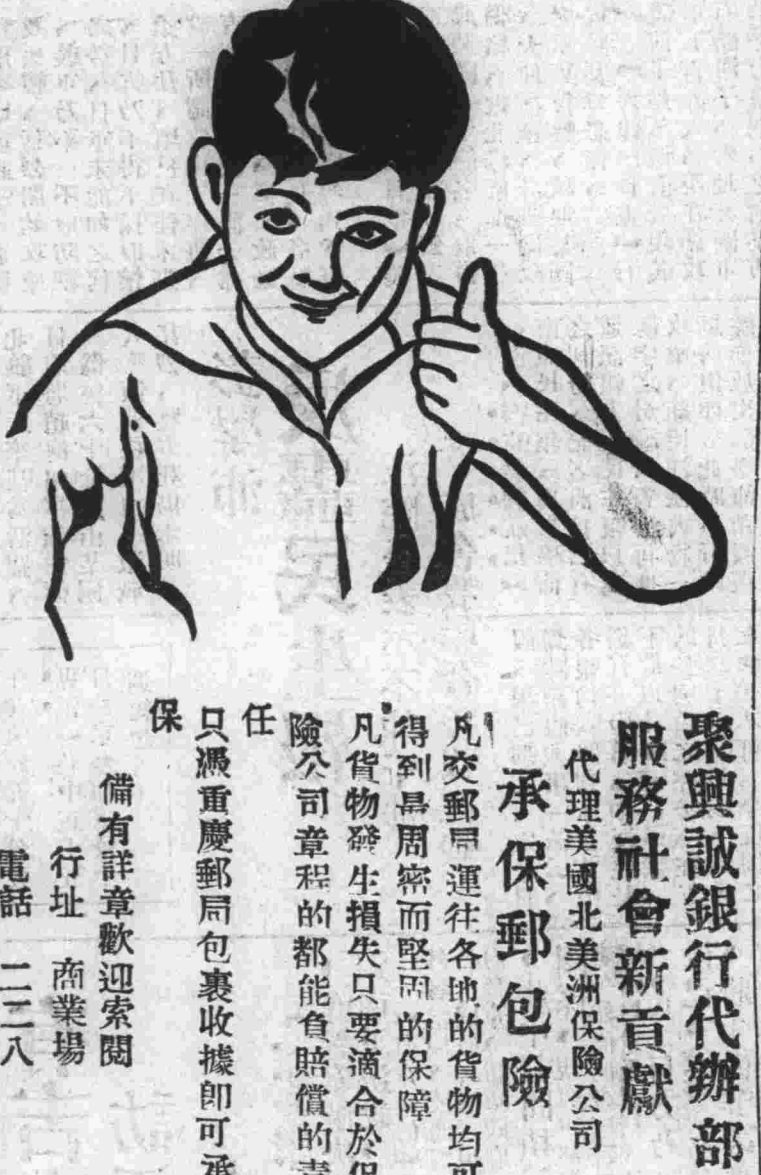 聚興誠銀行代辦部
服務社會新貢獻
代理美國北美洲保險公司
承保郵包險
凡交郵局運往各地的貨物均可
得到最周密而堅固的保障
凡貨物發生損失只要適合於保
險公司章程的都能負賠償的責
任
只憑重慶郵局包裹收據即可承
保
備有詳章歡迎索閱
行址 商業場
電話 二二八